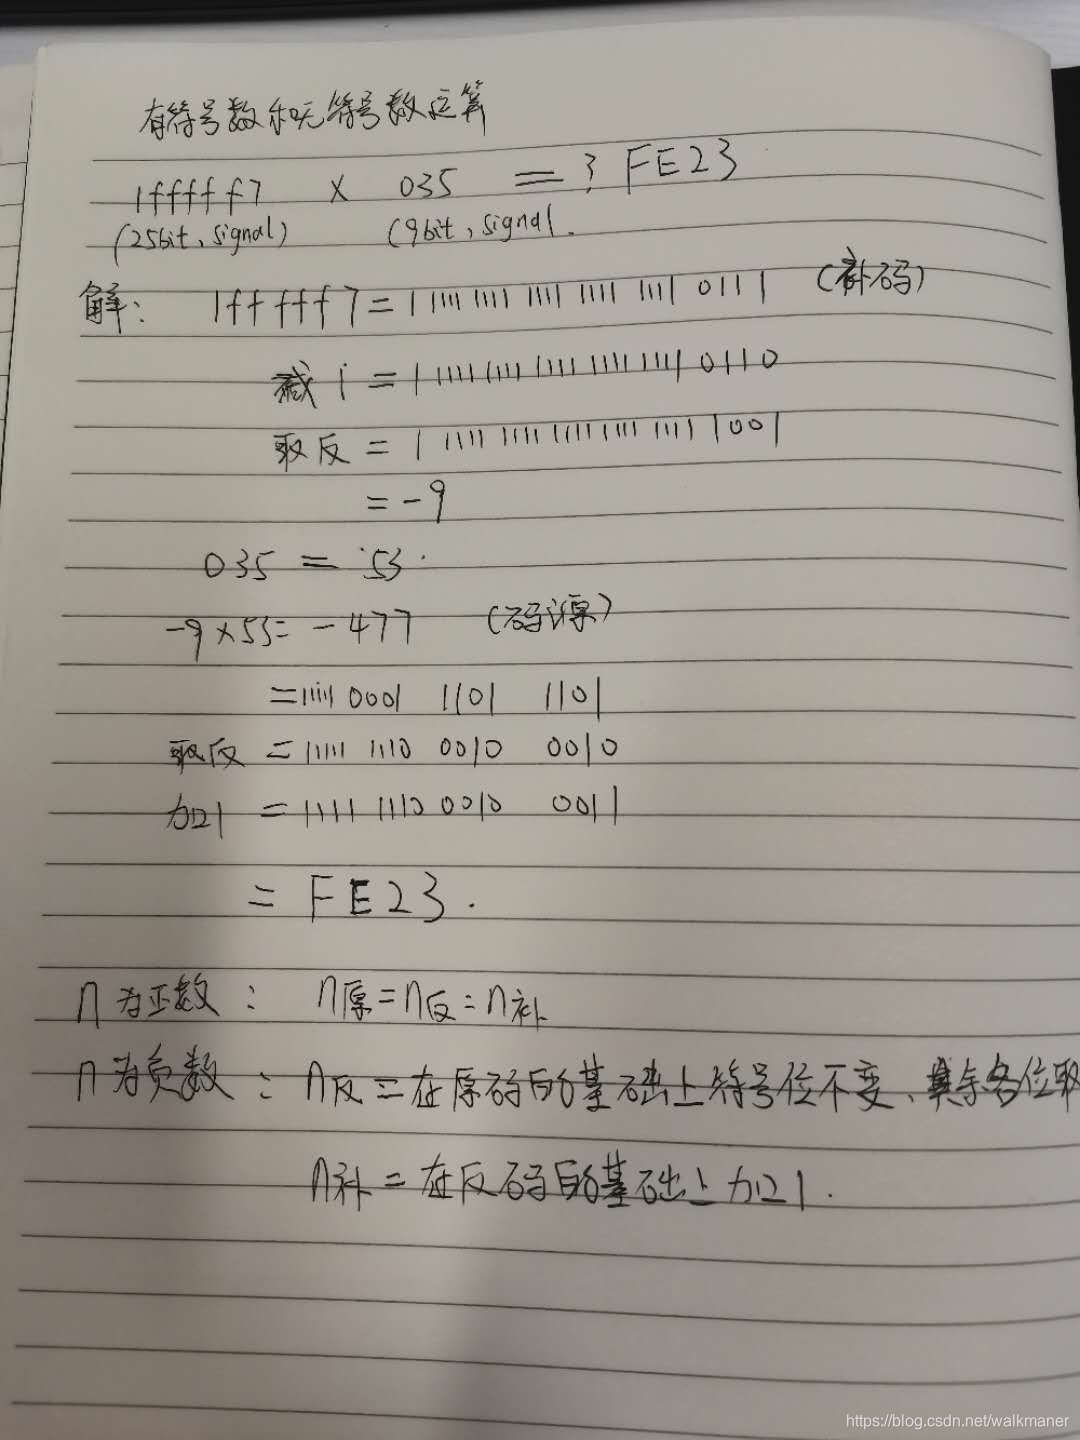 有符号数和无符号数运算
1fffff7 × 035 = ? FE23
(25bit, signal) (9bit, signal.
解: 1ffffff7 = 1 1111 1111 1111 1111 1111 0111 (补码)
减1 = 1 1111 1111 1111 1111 1111 0110
取反 = 1 1111 1111 1111 1111 1111 1001
= -9
035 = 53.
-9×53= -477 (码源)
=1111 0001 1101 1101
取反 = 11111 1110 0010 0010
加1 = 1111 1110 0010 0011
= FE23.
n为正数: n原=n反=n补
n为负数: n反=在原码的基础上符号位不变、其余各位取
n补=在反码的基础上加1.
https://blog.csdn.net/walkmaner